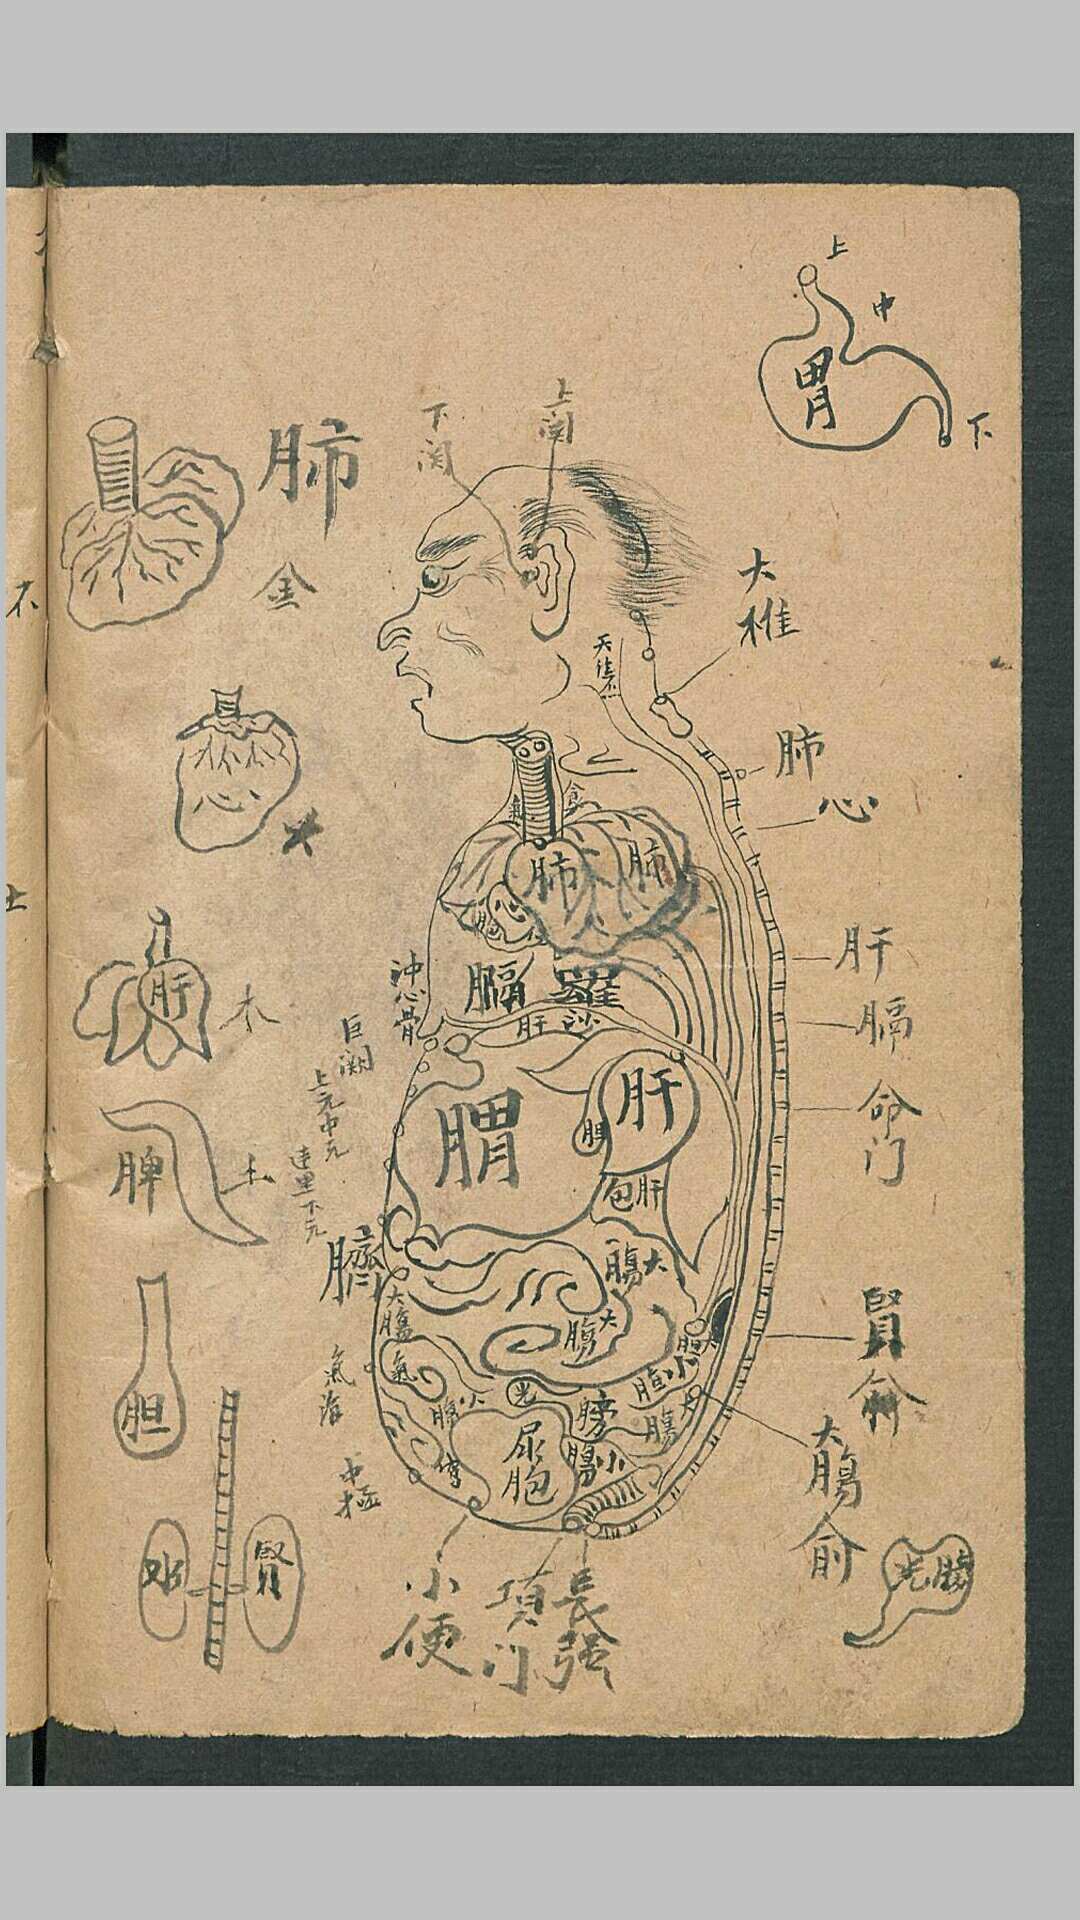 上
中
胃
下
下
関
上
関
肺
金
大
椎
肺
心
心
火
肺
肺
食
肝
木
沖
心
骨
膈
羅
肝
肝
膈
命
门
巨
闕
上元中元
建里下元
脾
土
胃
肝
胆
包
肝
臍
大
腸
大腸
大腸
氣
海
氣
胆
腎
俞
中
極
膀
尿
胞
小
腸
大
腸
俞
腎
小
便
肛
门
長
强
膀
光